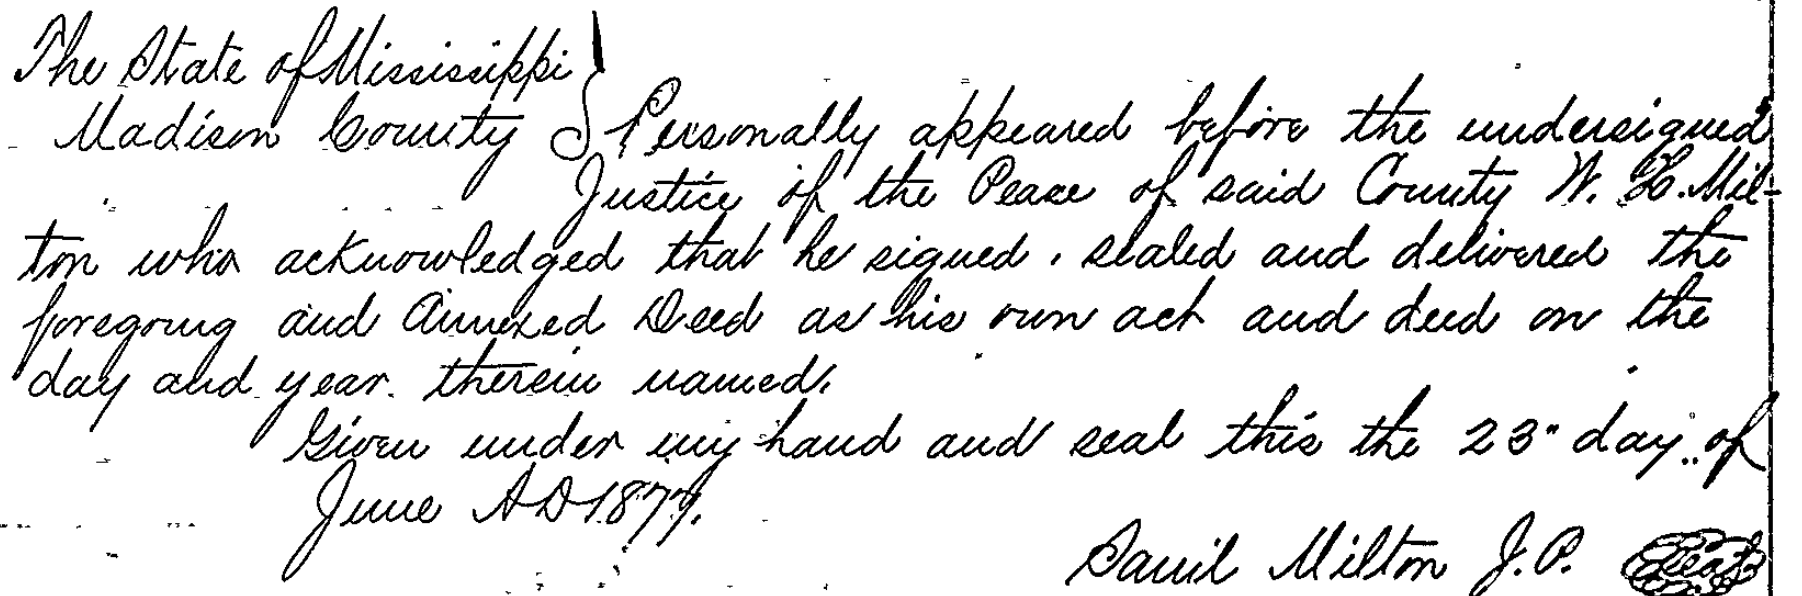 The State of Mississippi }
Madison County } Personally appeared before the undersigned
Justice of the Peace of said County W. H. Mil-
ton who acknowledged that he signed, sealed and delivered the
foregoing and Annexed Deed as his own act and deed on the
day and year therein named.
Given under my hand and seal this the 23" day of
June AD 1877.
Milton J.P. Seal